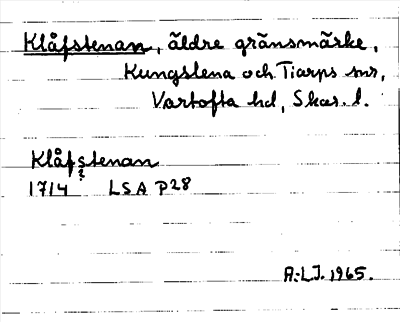 Klåfstenan, äldre gränsmärke,
Kungslena och Tiarps snr,
Vartofta hd, Skar. l.
Klåfstenan
?
1714 LSA P28
A.-L.J. 1965.